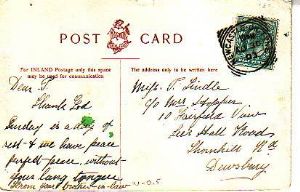 POST CARD
For INLAND Postage only this space
may be used for communication.
The address only to be written here
Dear
Thank God
Sunday is a day of
rest & we have peace
perfect peace, without
your long tongue
From your brother-in-law
Miss. Lindle
c/o Mrs
10 Fairfield View
Lees Hall Road
Thornhill
Dewsbury